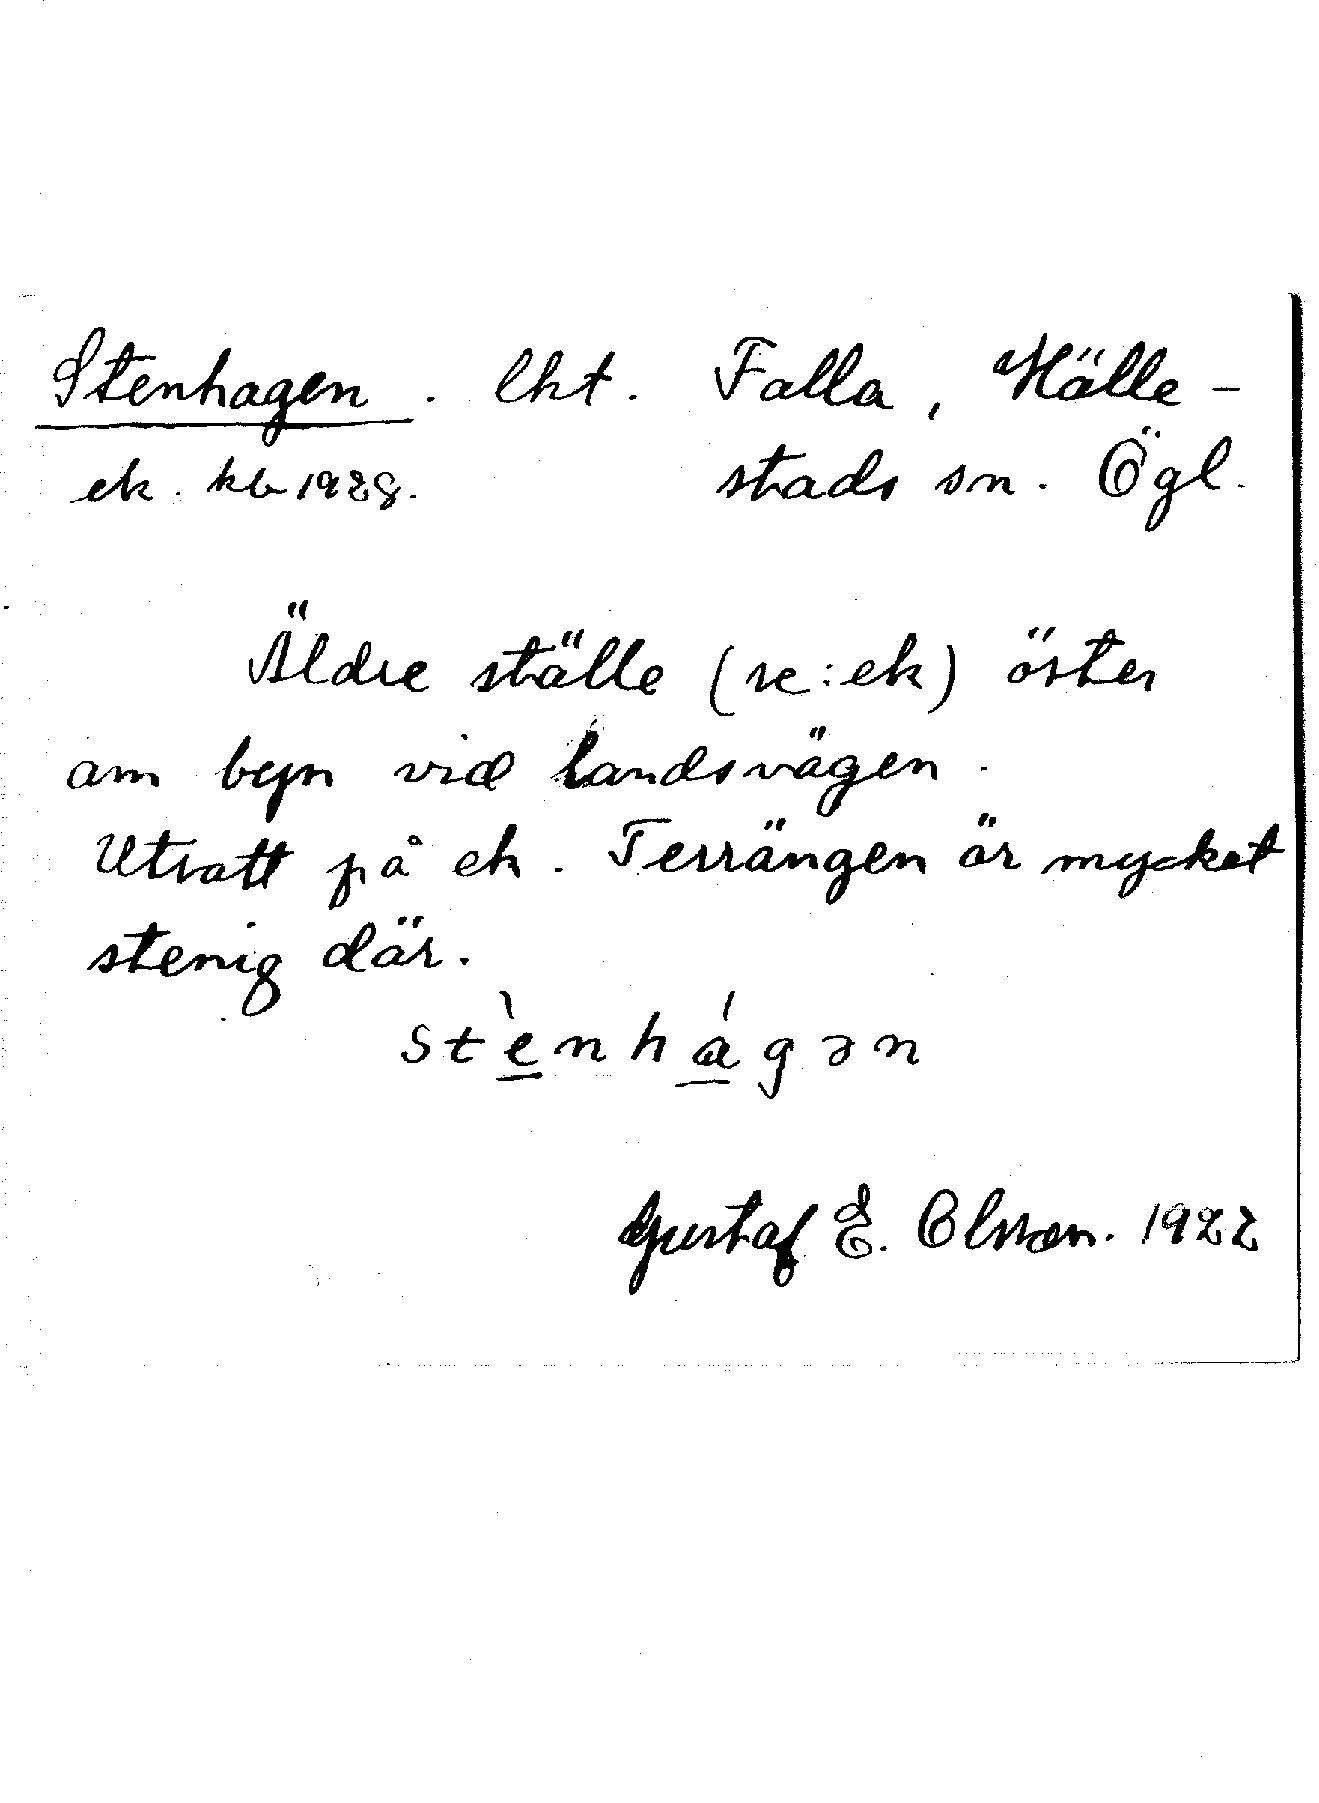 Stenhagen. lht. Falla, Hälle-
ek. kb 1928. stads sn. Ögl.
Äldre ställe (re: ek) öster
om byn vid landsvägen.
Utsatt på ek. Terrängen är mycket
stenig där.
stènhágən
Gustaf E. Olsson. 1922